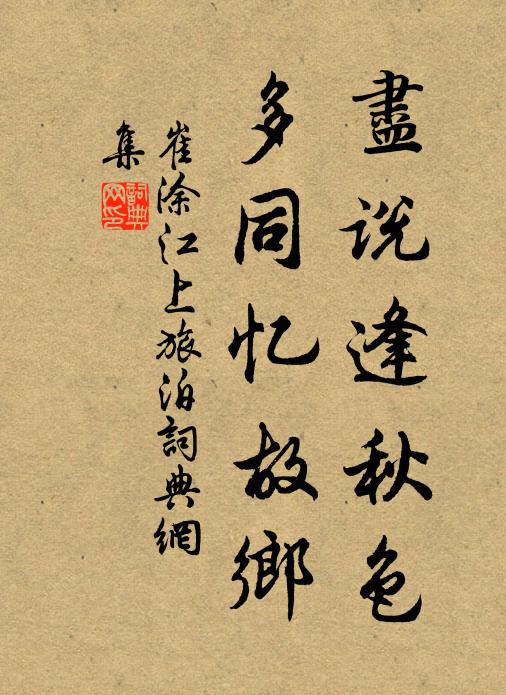 盡説逢秋色
多同忆故鄉
崔涂江上旅泊詞典網
集
詞典网印